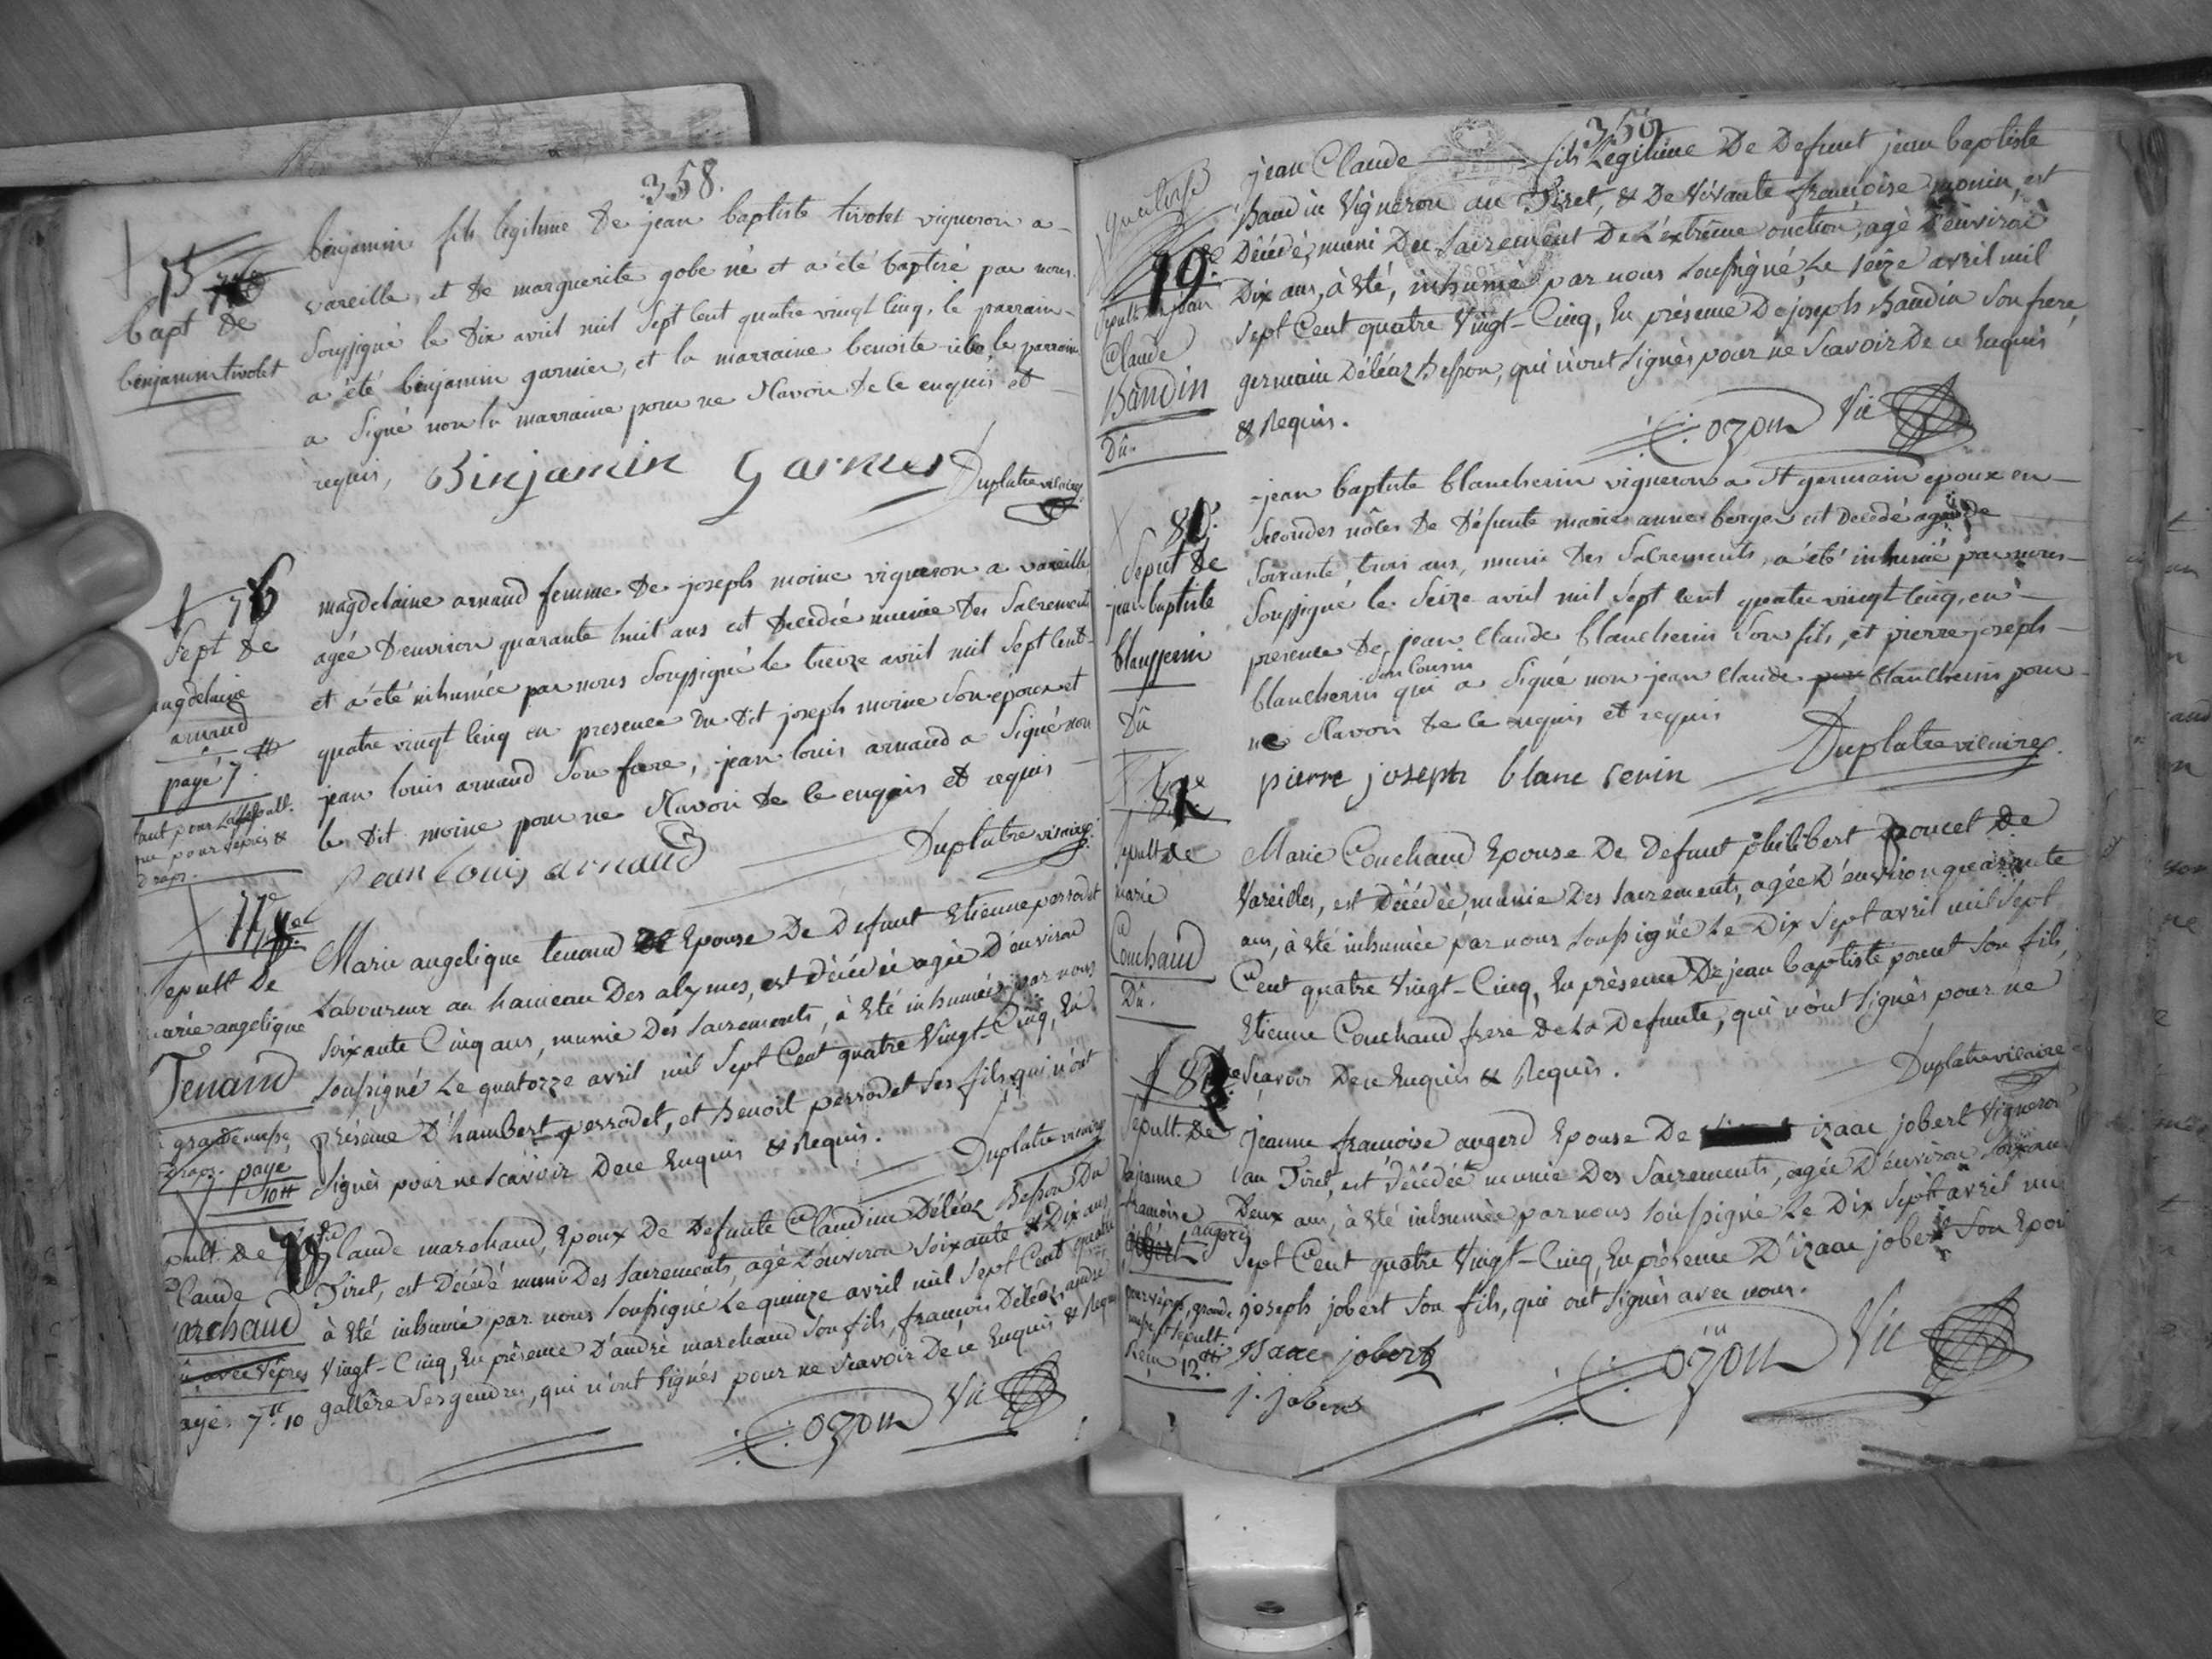 358.
75
bapt de
benjamin tivolet
benjamin fils legitime de jean baptiste tivolet vigneron a
vareille, et de marguerite gobe né et a été baptisé par nous
soussigné le dix avril mil sept cent quatre vingt cinq, le parrain
a été benjamin garnier, et la marraine benoite le parrain
a signé non la marraine pour ne scavoir de ce enquis et
requis,
Binjamin Garnier
Duplatre vicaire
76
sept de
magdelaine
arnaud
payé 7tt
magdelaine arnaud femme de joseph moine vigneron a vareille
agée d'environ quarante huit ans est decedée munie des sacrements
et a été inhumée par nous soussigné le treize avril mil sept cent
quatre vingt cinq en presence du dit joseph moine son époux et
jean louis arnaud son frere, jean louis arnaud a signé non
le dit moine pour ne scavoir de ce enquis et requis
jean Louis arnaud
Duplatre vicaire
77e
Sepult De
marie angelique
Tenand
payé
10tt
Marie angelique tenand Epouse De Defunt Etienne perrodet
Laboureur au hameau Des abymes, est décédée agée D'environ
soixante Cinq ans, munie Des sacrements, à été inhumée par nous
soussigné Le quatorze avril mil Sept Cent quatre Vingt-Cinq, En
présence D'hambert perrodet, et Benoit perrodet ses fils qui n'ont
signés pour ne scavoir De ce Enquis & Requis.
Duplatre vicaire
pult. de
Claude
marchand
payé. 7tt 10
78
Claude marchand, Epoux De Defunte Claudine Déléaz Besson Du
Tiret, est Décédé muni Des sacrements, agé D'environ soixante & Dix ans
à été inhumé par nous soussigné Le quinze avril mil sept Cent quatre
Vingt-Cinq, En présence D'andré marchand son fils, francois Déléaz andré
gallere ses gendres, qui n'ont signés pour ne scavoir De ce Enquis & Requis
Cozon Vic
359
79e
sepult de jean
Claude
Baudin
Dû.
jean Claude fils Legitime De Defunt jean baptiste
Baudin Vigneron au Tiret, & De Vivante francoise monin, est
Décédé, muni Du Sacrement De L'extrême onction, agé D'environ
Dix ans, à été, inhumé par nous soussigné, Le seize avril mil
sept Cent quatre Vingt-Cinq, En présence De joseph Baudin son frere,
germain Déléaz Besson, qui n'ont signés pour ne Scavoir De ce Enquis
& Requis.
Cozon Vic
80.
Sepul de
jean baptiste
blansserin
Dû
jean baptiste blancherin vigneron a St germain epoux en
secondes nôces de défunte marie anne berger est decedé agé de
soixante trois ans, muni des sacrements, a été inhumé par nous
soussigné le seize avril mil sept cent quatre vingt cinq, en
presence de jean claude blancherin son fils, et pierre joseph
son cousin
blancherin qui a signé non jean claude blancherin pour
ne scavoir de ce enquis et requis
pierre joseph blanc serin
Duplatre vicaire
81e
sepult de
marie
Couchaud
Dû.
Marie Couchaud Epouse De Defunt philibert poncet De
Vareilles, est Décédée, munie Des sacrements, agée D'environ quarante
ans, à été inhumée par nous soussigné Le Dix Sept avril mil sept
Cent quatre Vingt-Cinq, En présence De jean baptiste poncet son fils,
Etienne Couchaud frere De La Defunte, qui n'ont signés pour ne
Scavoir De ce Enquis & Requis.
Duplatre vicaire
82e
Sepult. De
jeanne
francoise
augerd
sépult.
Reçu 12tt
jeanne francoise augerd Epouse De izaac jobert Vigneron
au Tiret, est décédée munie Des Sacrements, agée D'environ soixante
Deux ans, à été inhumée par nous soussigné Le Dix Sept avril mil
sept Cent quatre Vingt-Cinq, En présence D'izaac jobert son Epoux
joseph jobert son fils, qui ont signés avec nous.
Isaac jobert
j. jobert
Cozon Vic